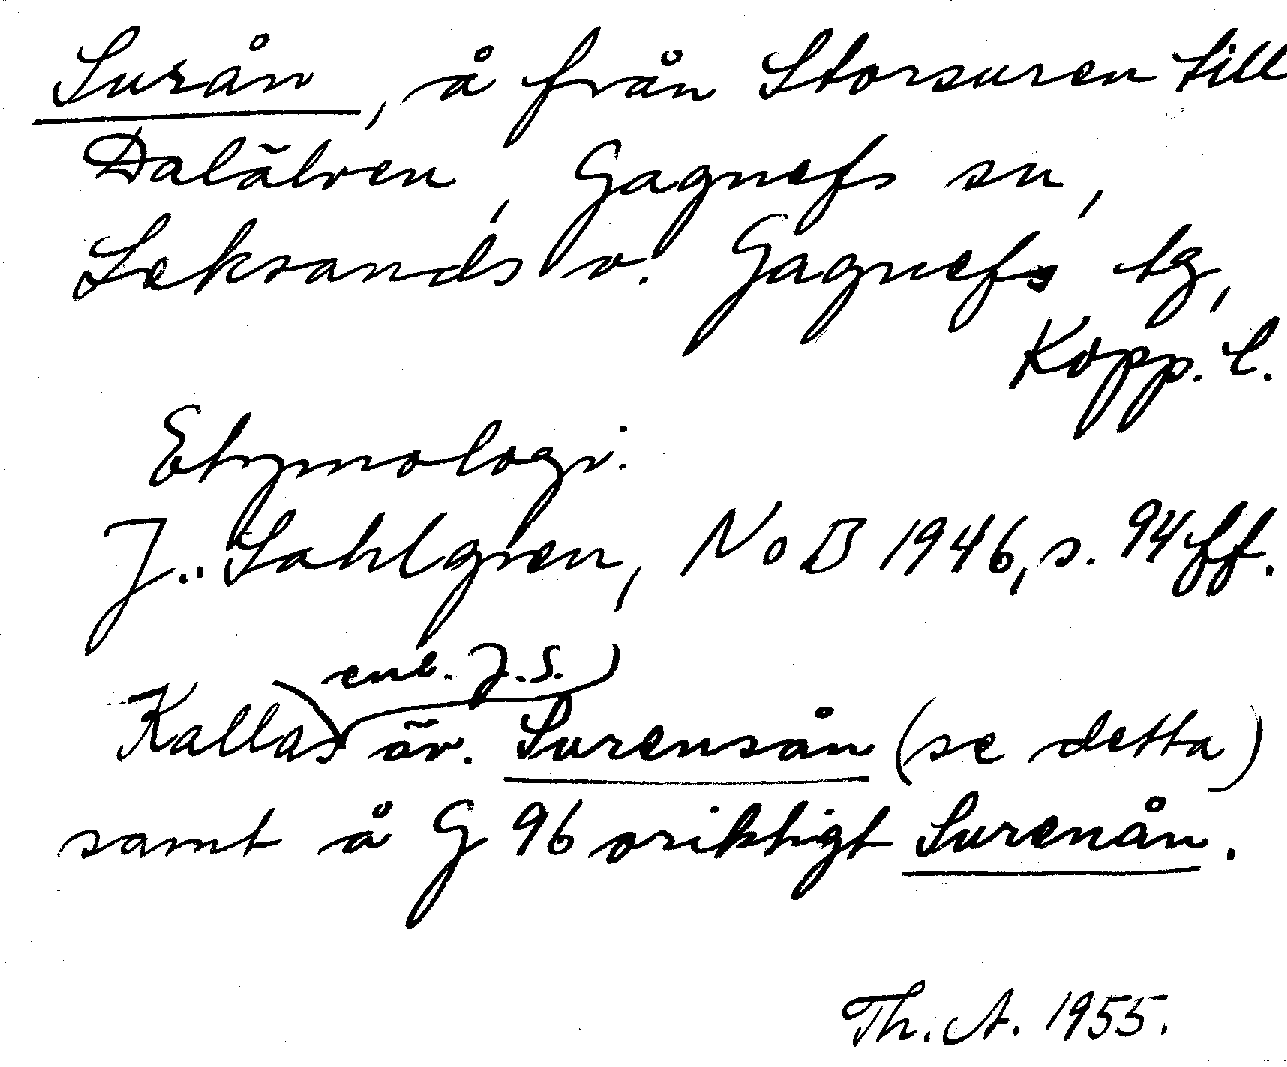 Surån, å från Storsuren till
Dalälven, Gagnefs sn,
Leksands o. Gagnefs tg,
Kopp. l.
Etymologi:
J. Sahlgren, NoB 1946, s. 94 ff.
enl. J.S.
Kallas äv. Surensån (se detta)
samt å G 96 oriktigt Surenån.
Th. A. 1955.